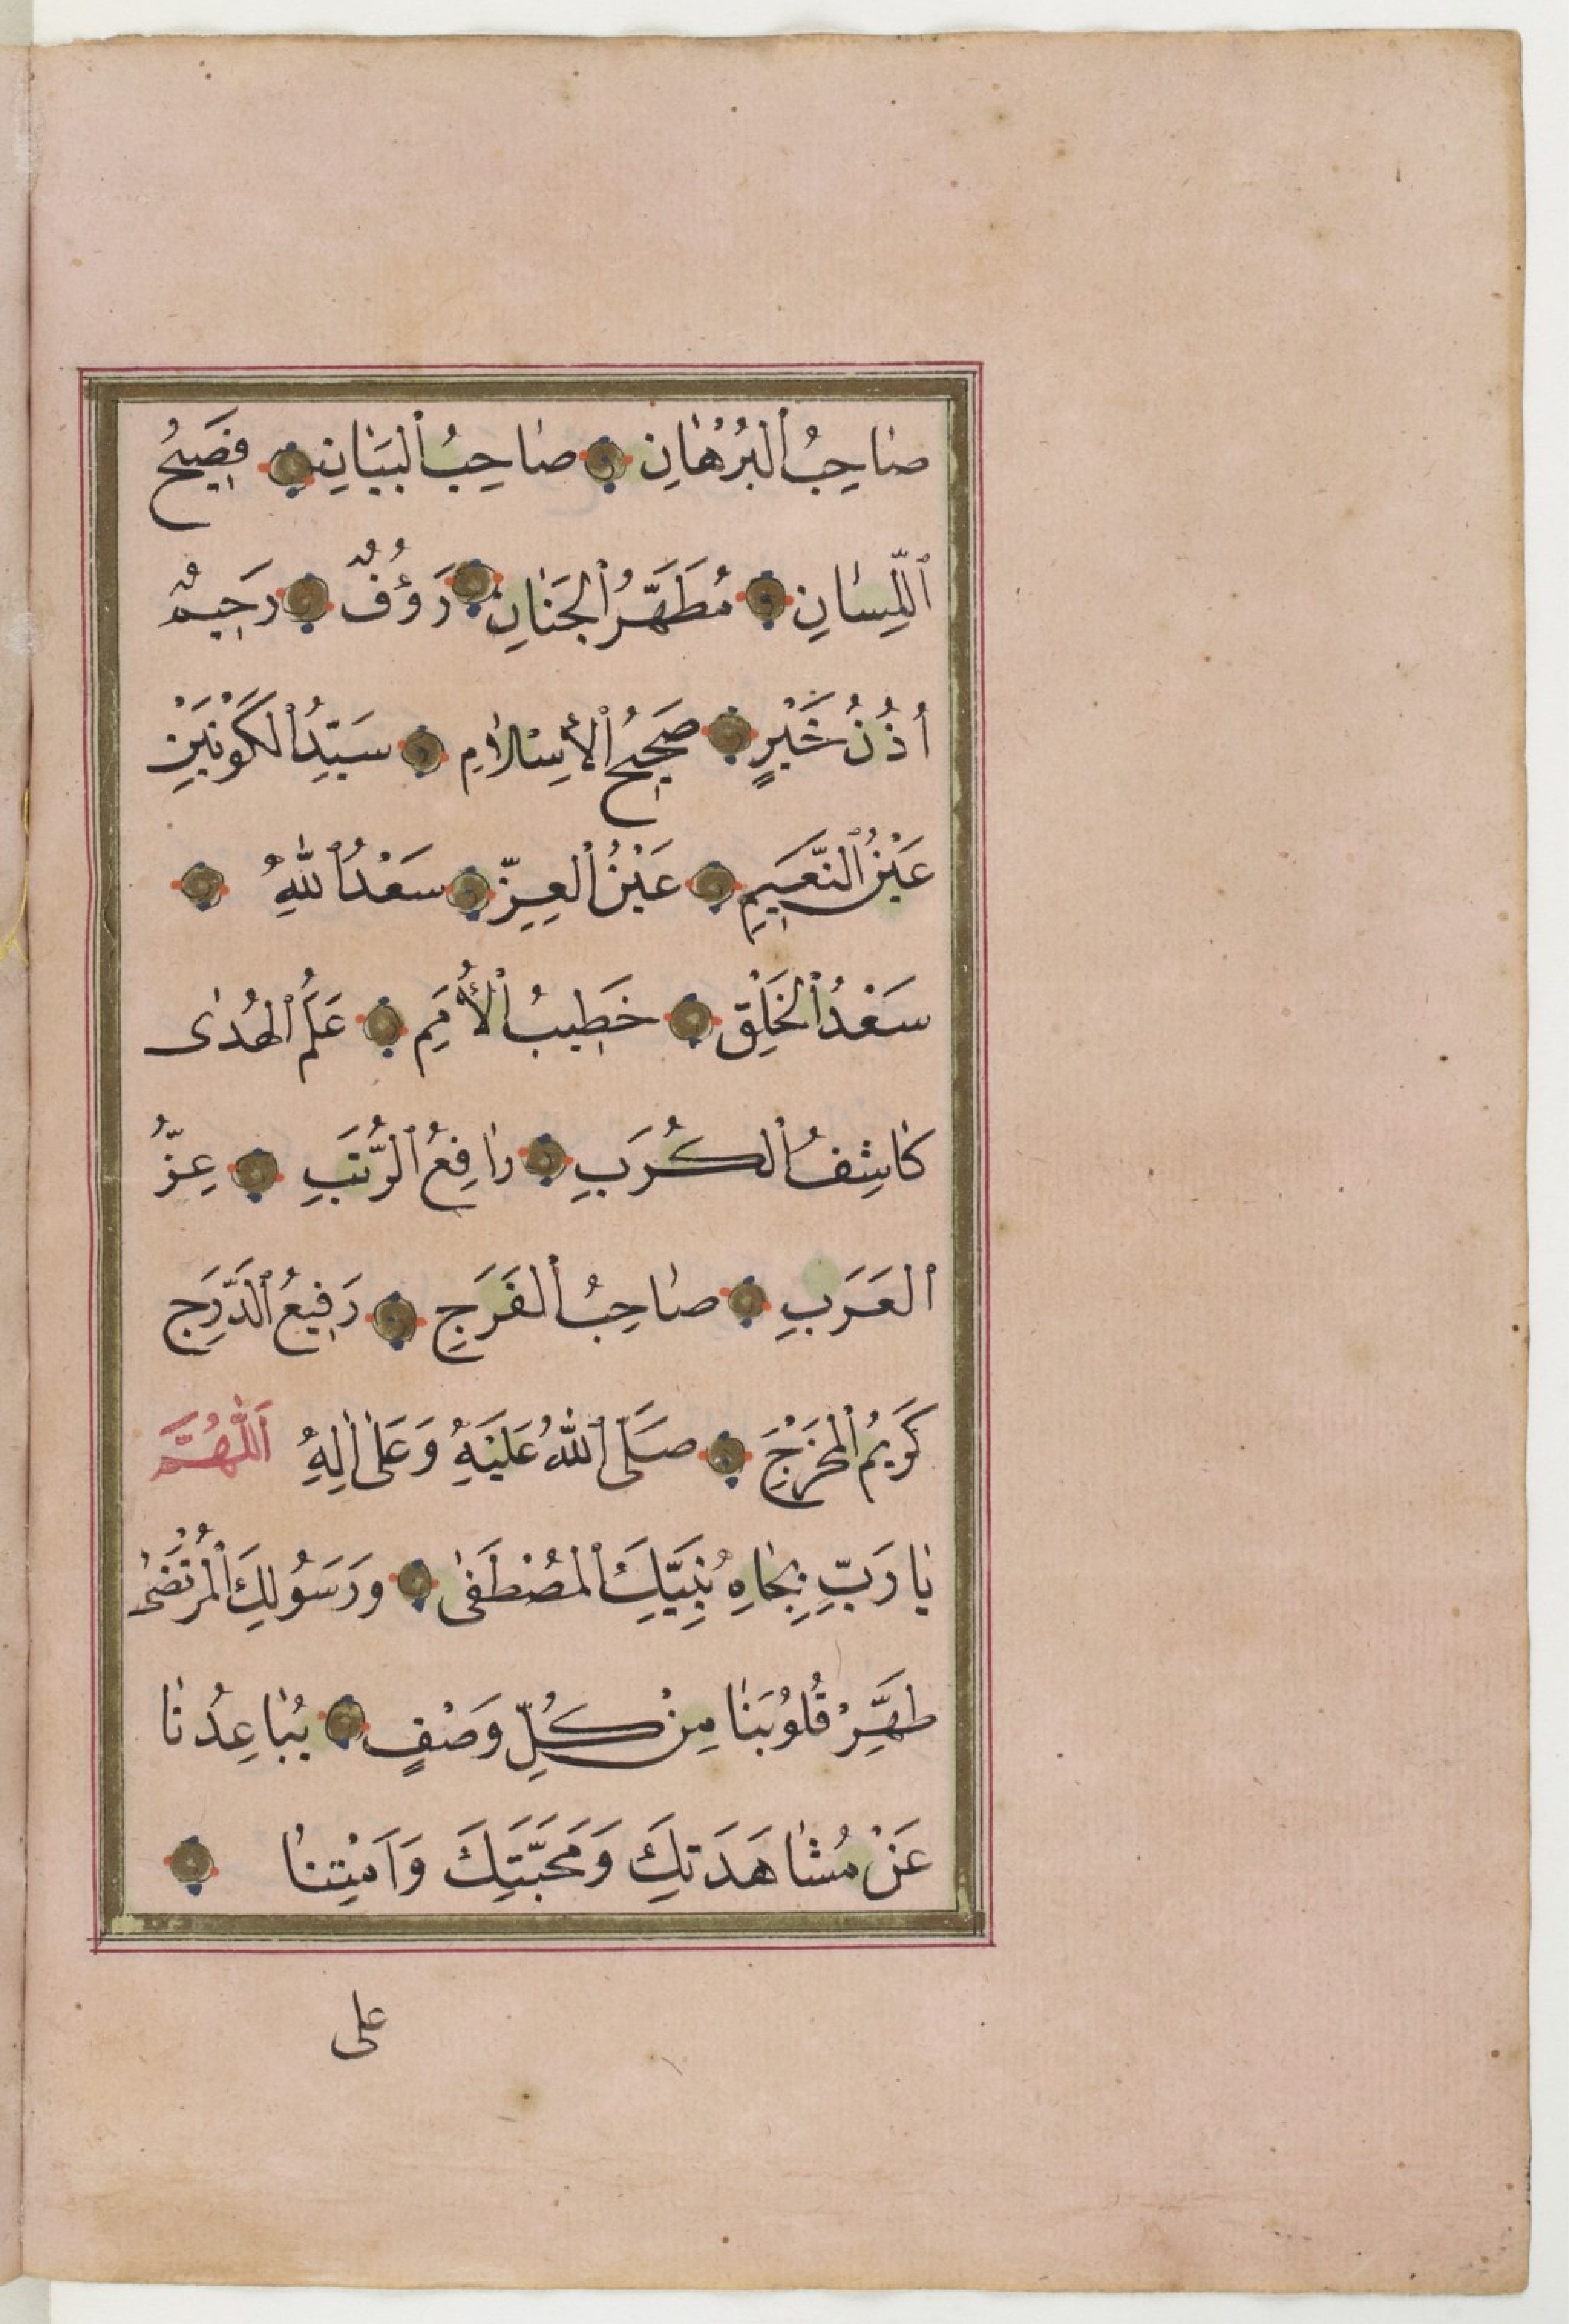 صَاحِبُ ٱلْبُرْهَانِ صَاحِبُ ٱلْبَيَانِ فَصِيحُ
ٱللِّسَانِ مُطَهَّرُ ٱلْجَنَانِ رَؤُفٌ رَحِيمٌ
اُذُنُ خَيْرٍ صَحِيحُ ٱلْأِسْلَامِ سَيِّدُ ٱلْكَوْنَيْنِ
عَيْنُ ٱلنَّعِيمِ عَيْنُ ٱلْعِزِّ سَعْدُ ٱللّٰهِ
سَعْدُ ٱلْخَلْقِ خَطِيبُ ٱلْأُمَمِ عَلَمُ ٱلْهُدٰى
كَاشِفُ ٱلْكُرَبِ رَافِعُ ٱلرُّتَبِ عِزُّ
ٱلْعَرَبِ صَاحِبُ ٱلْفَرَجِ رَفِيعُ ٱلدَّرَجِ
كَرِيمُ ٱلْمَخْرَجِ صَلَّى ٱللّٰهُ عَلَيْهِ وَعَلٰى اٰلِهِ اَللّٰهُمَّ
يَا رَبِّ بِجَاهِ نَبِيِّكَ ٱلْمُصْطَفٰى وَرَسُولِكَ ٱلْمُرْتَضٰى
طَهِّرْ قُلُوبَنَا مِنْ كُلِّ وَصْفٍ يُبَاعِدُنَا
عَنْ مُشَاهَدَتِكَ وَمَحَبَّتِكَ وَاَمِتْنَا
على